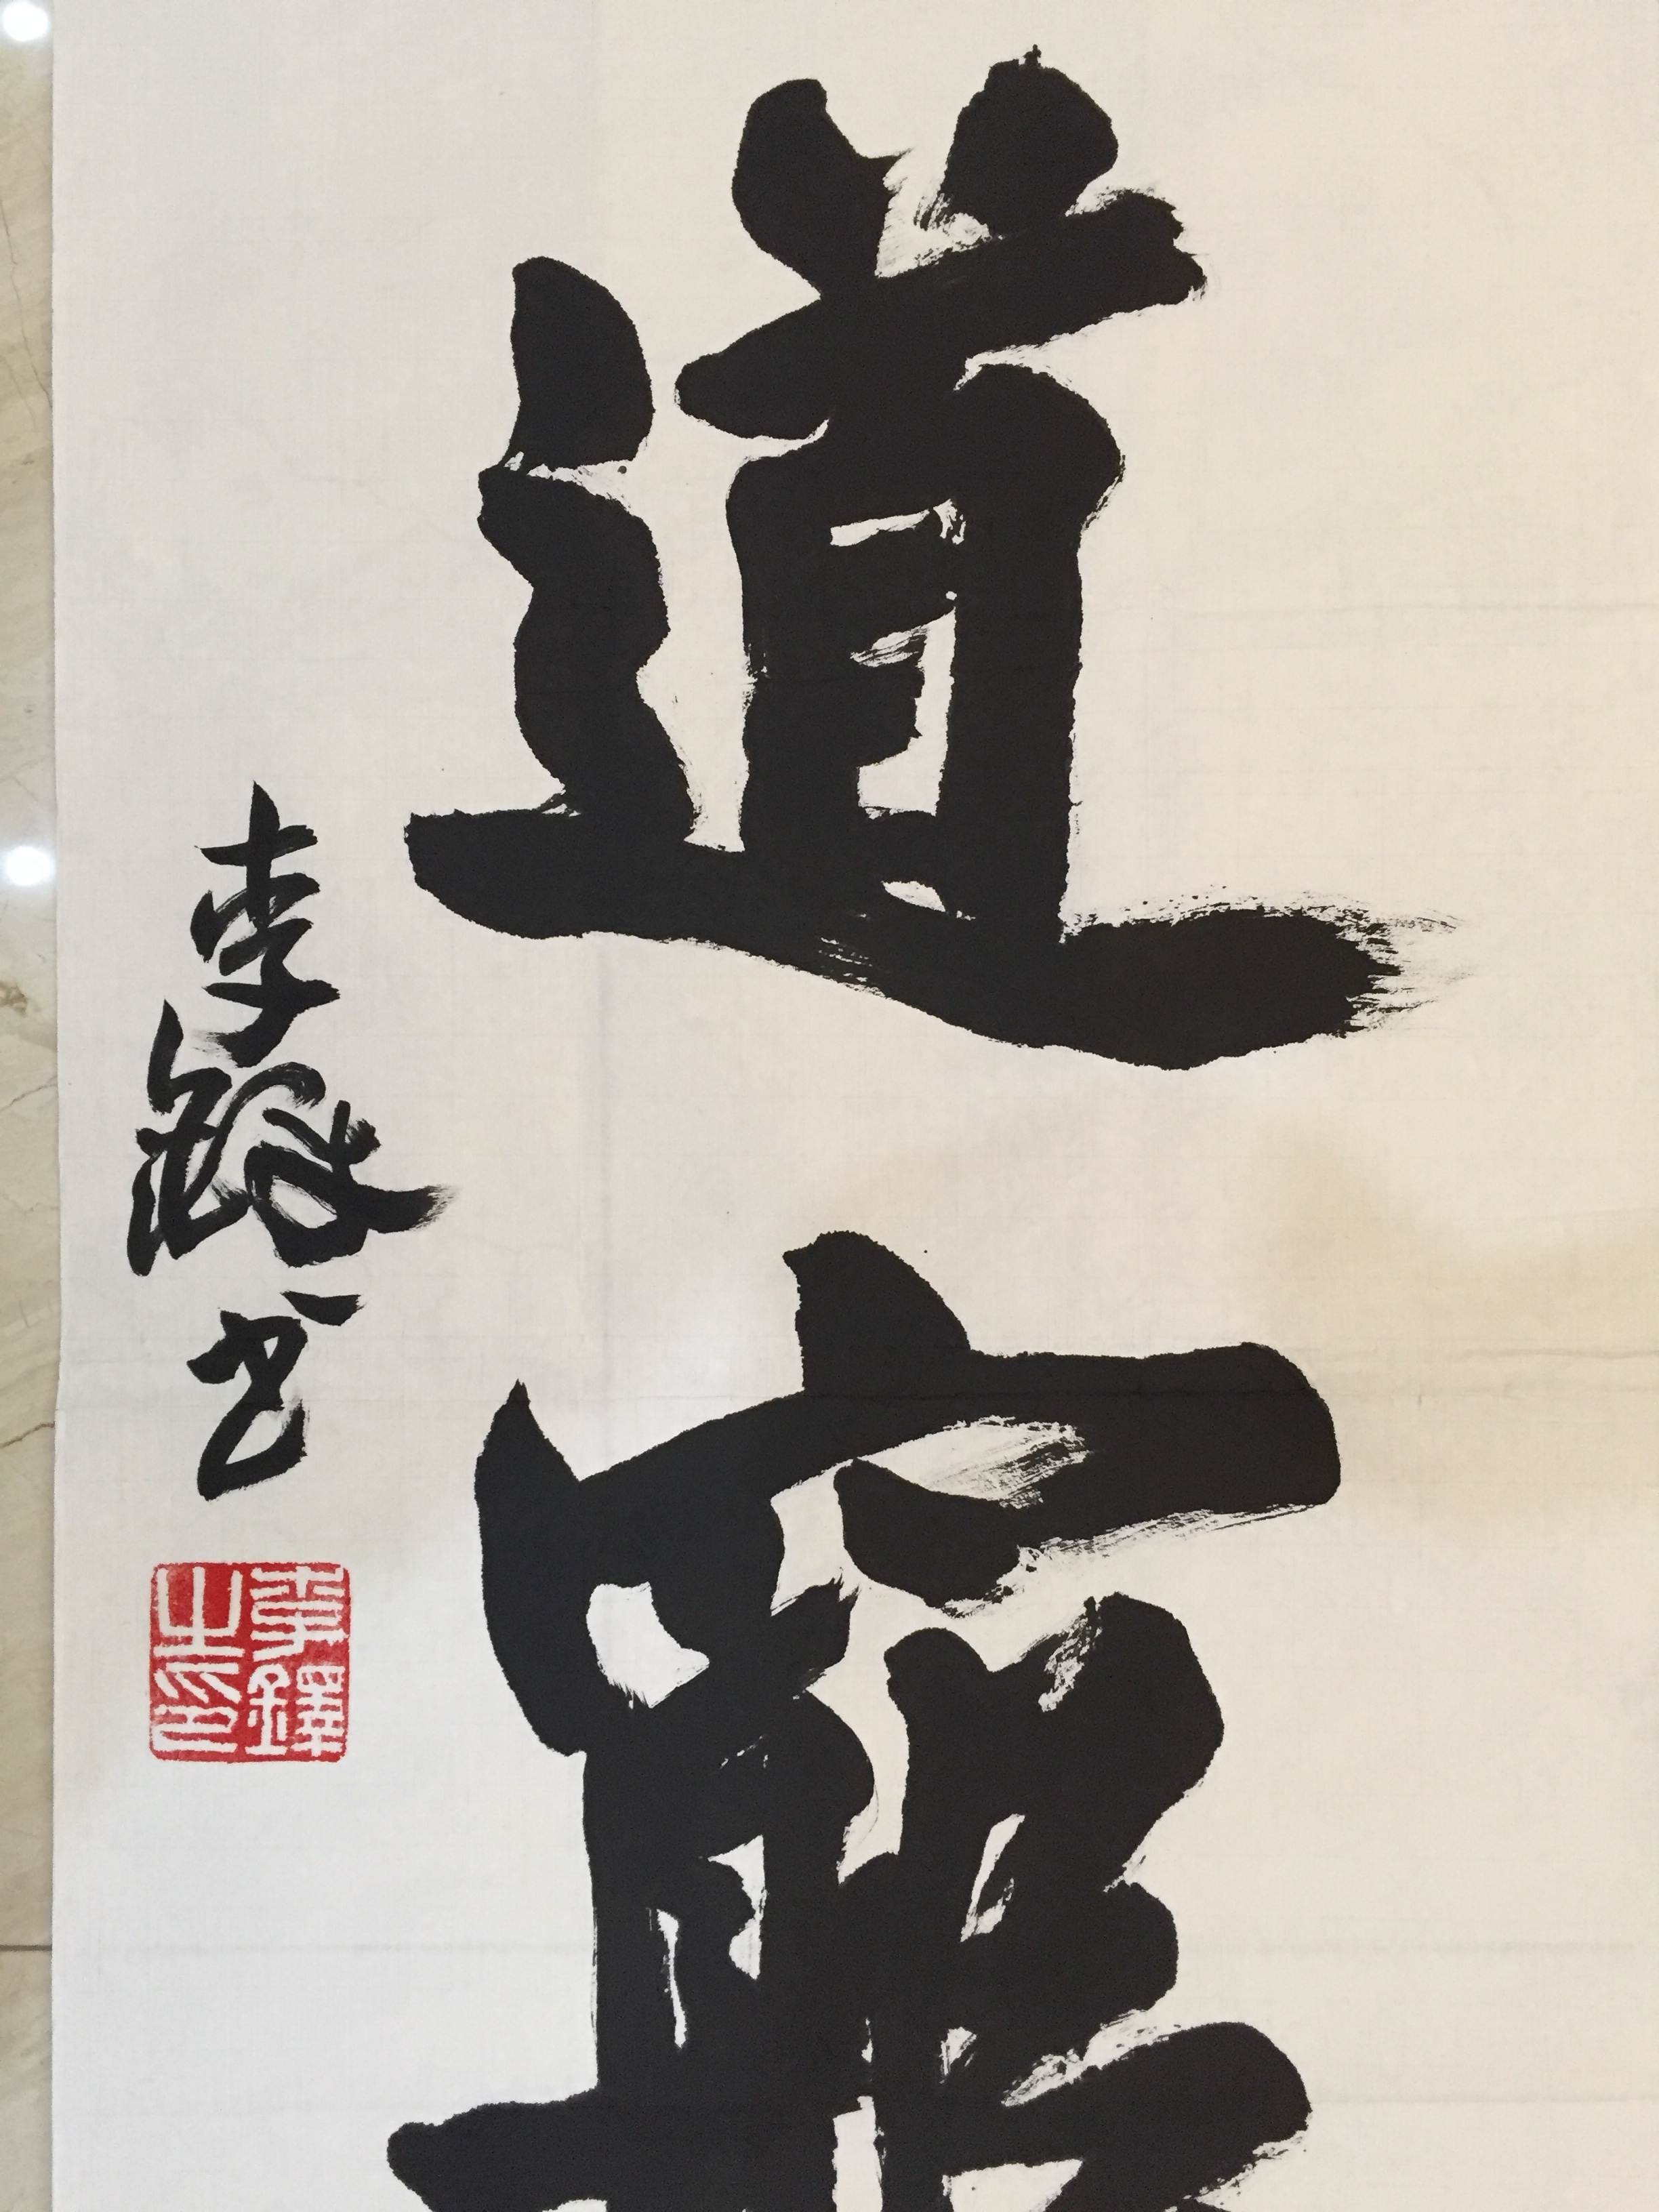 道
李鐸书
李鐸之印